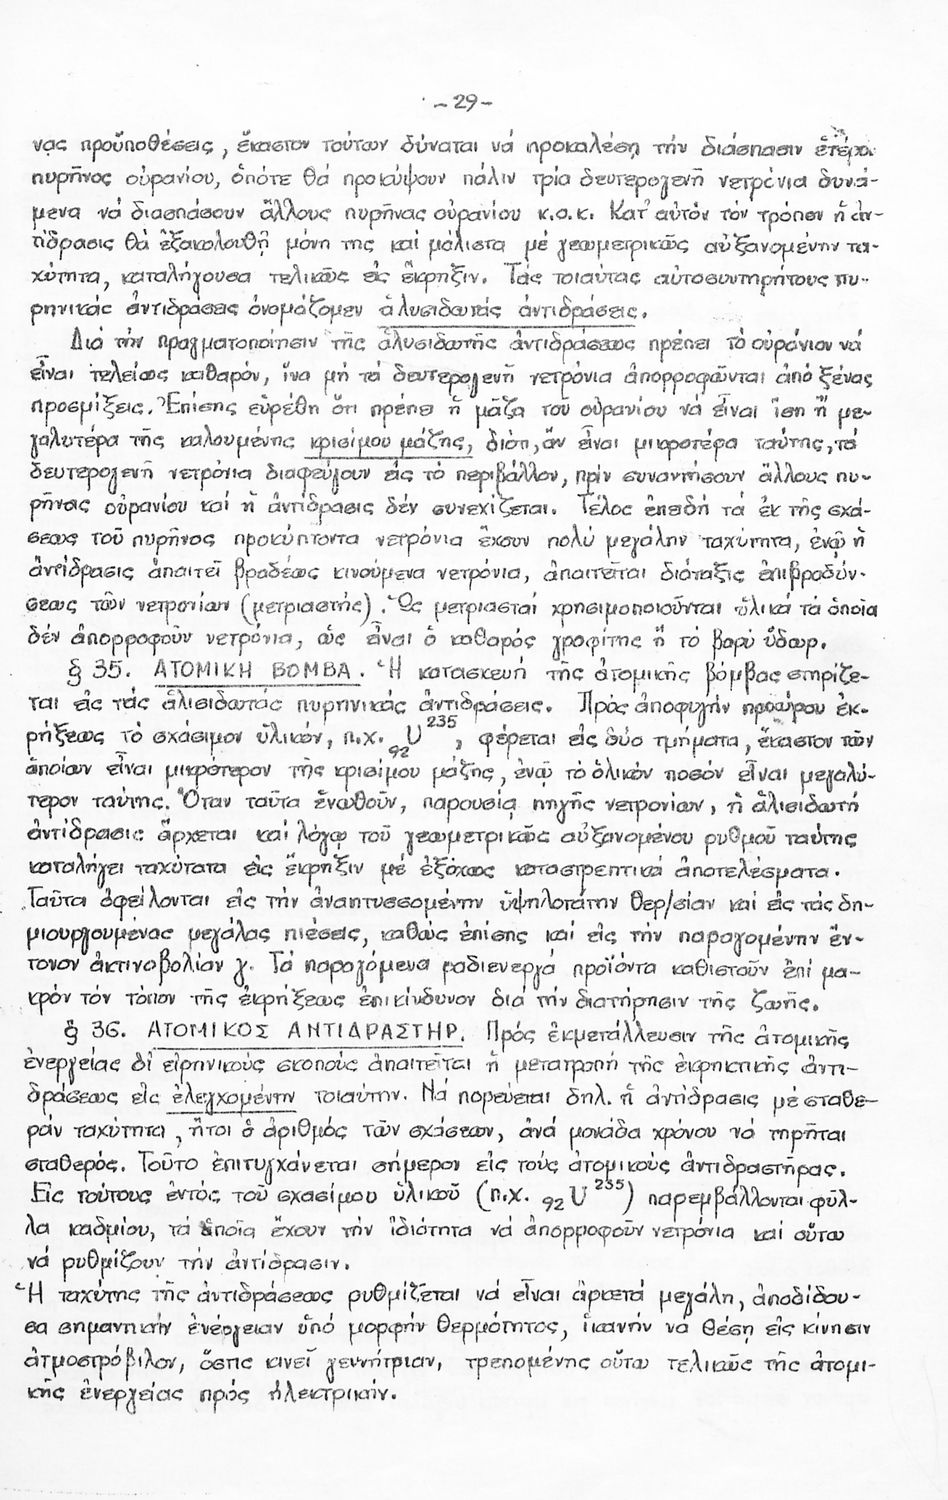 -29-
νας προϋποθέσεις, ἕκαστον τούτων δύναται νά προκαλέσῃ τήν διάσπασιν ἑτέρου
πυρῆνος οὐρανίου, ὁπότε θά προκύψουν πάλιν τρία δευτερογενῆ νετρόνια δυνά-
μενα νά διασπάσουν ἄλλους πυρῆνας οὐρανίου κ.ο.κ. Κατ' αὐτόν τόν τρόπον ἡ ἀν-
τίδρασις θά ἐξακολουθῇ μόνη της καί μάλιστα μέ γεωμετρικῶς αὐξανομένην τα-
χύτητα, καταλήγουσα τελικῶς εἰς ἔκρηξιν. Τάς τοιαύτας αὐτοσυντηρήτους πυ-
ρηνικάς ἀντιδράσεις ὀνομάζομεν ἁλυσιδωτάς ἀντιδράσεις.
Διά τήν πραγματοποίησιν τῆς ἁλυσιδωτῆς ἀντιδράσεως πρέπει τό οὐράνιον νά
εἶναι τελείως καθαρόν, ἵνα μή τά δευτερογενῆ νετρόνια ἀπορροφῶνται ἀπό ξένας
προσμίξεις. Ἐπίσης εὑρέθη ὅτι πρέπει ἡ μᾶζα τοῦ οὐρανίου νά εἶναι ἴση ἤ με-
γαλυτέρα τῆς καλουμένης κρισίμου μάζης, διότι, ἄν εἶναι μικροτέρα ταύτης, τά
δευτερογενῆ νετρόνια διαφεύγουν εἰς τό περιβάλλον, πρίν συναντήσουν ἄλλους πυ-
ρῆνας οὐρανίου καί ἡ ἀντίδρασις δέν συνεχίζεται. Τέλος ἐπειδή τά ἐκ τῆς σχά-
σεως τοῦ πυρῆνος προκύπτοντα νετρόνια ἔχουν πολύ μεγάλην ταχύτητα, ἐνῷ ἡ
ἀντίδρασις ἀπαιτεῖ βραδέως κινούμενα νετρόνια, ἀπαιτεῖται διάταξις ἐπιβραδύν-
σεως τῶν νετρονίων (μετριαστής). Ὡς μετριασταί χρησιμοποιοῦνται ὑλικά τά ὁποῖα
δέν ἀπορροφοῦν νετρόνια, ὡς εἶναι ὁ καθαρός γραφίτης ἤ τό βαρύ ὕδωρ.
§ 35. ΑΤΟΜΙΚΗ ΒΟΜΒΑ. Ἡ κατασκευή τῆς ἀτομικῆς βόμβας στηρίζε-
ται εἰς τάς ἁλισιδωτάς πυρηνικάς ἀντιδράσεις. Πρός ἀποφυγήν προώρου ἐκ-
ρήξεως τό σχάσιμον ὑλικόν, π.χ. ₉₂U²³⁵, φέρεται εἰς δύο τμήματα, ἕκαστον τῶν
ὁποίων εἶναι μικρότερον τῆς κρισίμου μάζης, ἐνῷ τό ὁλικόν ποσόν εἶναι μεγαλύ-
τερον ταύτης. Ὅταν ταῦτα ἑνωθοῦν, παρουσίᾳ πηγῆς νετρονίων, ἡ ἁλισιδωτή
ἀντίδρασις ἄρχεται καί λόγῳ τοῦ γεωμετρικῶς αὐξανομένου ρυθμοῦ ταύτης
καταλήγει ταχύτατα εἰς ἔκρηξιν μέ ἐξόχως καταστρεπτικά ἀποτελέσματα.
Ταῦτα ὀφείλονται εἰς τήν ἀναπτυσσομένην ὑψηλοτάτην θερ/σίαν καί εἰς τάς δη-
μιουργουμένας μεγάλας πιέσεις, καθώς ἐπίσης καί εἰς τήν παραγομένην ἔν-
τονον ἀκτινοβολίαν γ. Τά παραγόμενα ραδιενεργά προϊόντα καθιστοῦν ἐπί μα-
κρόν τόν τόπον τῆς ἐκρήξεως ἐπικίνδυνον διά τήν διατήρησιν τῆς ζωῆς.
§ 36. ΑΤΟΜΙΚΟΣ ΑΝΤΙΔΡΑΣΤΗΡ. Πρός ἐκμετάλλευσιν τῆς ἀτομικῆς
ἐνεργείας δι' εἰρηνικούς σκοπούς ἀπαιτεῖται ἡ μετατροπή τῆς ἐκρηκτικῆς ἀντι-
δράσεως εἰς ἐλεγχομένην τοιαύτην. Νά πορεύεται δηλ. ἡ ἀντίδρασις μέ σταθε-
ράν ταχύτητα, ἤτοι ὁ ἀριθμός τῶν σχάσεων, ἀνά μονάδα χρόνου νά τηρῆται
σταθερός. Τοῦτο ἐπιτυγχάνεται σήμερον εἰς τούς ἀτομικούς ἀντιδραστῆρας.
Εἰς τούτους ἐντός τοῦ σχασίμου ὑλικοῦ (π.χ. ₉₂U²³⁵) παρεμβάλλονται φύλ-
λα καδμίου, τά ὁποῖα ἔχουν τήν ἰδιότητα νά ἀπορροφοῦν νετρόνια καί οὕτω
νά ρυθμίζουν τήν ἀντίδρασιν.
Ἡ ταχύτης τῆς ἀντιδράσεως ρυθμίζεται νά εἶναι ἀρκετά μεγάλη, ἀποδίδου-
σα σημαντικήν ἐνέργειαν ὑπό μορφήν θερμότητος, ἱκανήν νά θέσῃ εἰς κίνησιν
ἀτμοστρόβιλον, ὅστις κινεῖ γεννήτριαν, τρεπομένης οὕτω τελικῶς τῆς ἀτομι-
κῆς ἐνεργείας πρός ἠλεκτρικήν.